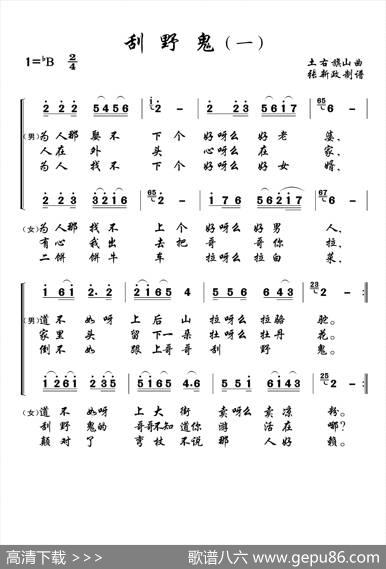 刮 野 鬼（一）
1=♭B 2/4
土右旗山曲
张新政制谱
2 2 2 5 4 5 6 2 - 2 2 3 5 6 1 7 6 -
（男）为人那娶不 下个 好呀么好老 婆、
人在外 头 心呀么在 家、
为人找不 下个 好呀么好女 婿、
2 2 3 3 2 1 6 2 - 1 7 6 5 6 2 1 7 6 -
（女）为人那找不 上个 好呀么好男 人、
有心我出 去把 哥哥你 拉、
二饼饼牛 车 拉呀么拉白 菜、
1 6 1 2. 2 2 1 6 5 4 5 6 1 6 5 4 2 -
（男）道不如呀 上后山 拉呀么拉骆 驼。
家里头 留下一朵 牡呀么牡丹 花。
倒不如 跟上哥哥 刮 野 鬼。
1 2 6 1 2 1 3 5 2 1 6 5 4. 6 6 1 4 3 2 -
（女）道不如呀 上大街 卖呀么卖凉 粉。
刮野鬼的 哥哥不知道你 游 活在 哪?
颠对了 弯杖不说 那 人好 赖。
高清下载 >>>
歌谱八六 www.gepu86.com